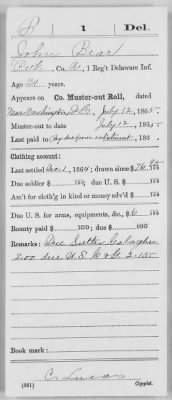 B | 1 | Del.
John Bear
Pvt., Co. A, 1 Reg't Delaware Inf.
Age 21 years.
Appears on Co. Muster-out Roll, dated
Near Washington D.C., July 12, 1865.
Muster-out to date July 12, 1865.
Last paid to No pay due from enlistment, 186 .
Clothing account:
Last settled Dec 1, 1864; drawn since $76 95/100
Due soldier $ 100; due U. S. $ 100
Am't for cloth'g in kind or money adv'd $ 100
Due U. S. for arms, equipments, &c., $6 100
Bounty paid $ 100; due $ 100
Remarks: Due Sutler
2.00 due U.S.
Book mark:
C. Lucas
(861) Copyist.